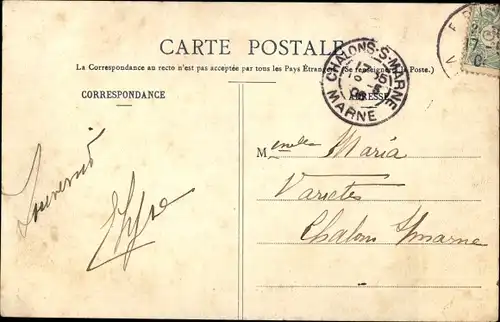 CARTE POSTALE
La Correspondance au recto n'est pas acceptée par tous les Pays Étrangers. (Se renseigner à la Poste.)
CORRESPONDANCE
ADRESSE
CHALONS-S-MARNE
MARNE
Souvenir
Melle Maria
Varietes
Chalons s/marne